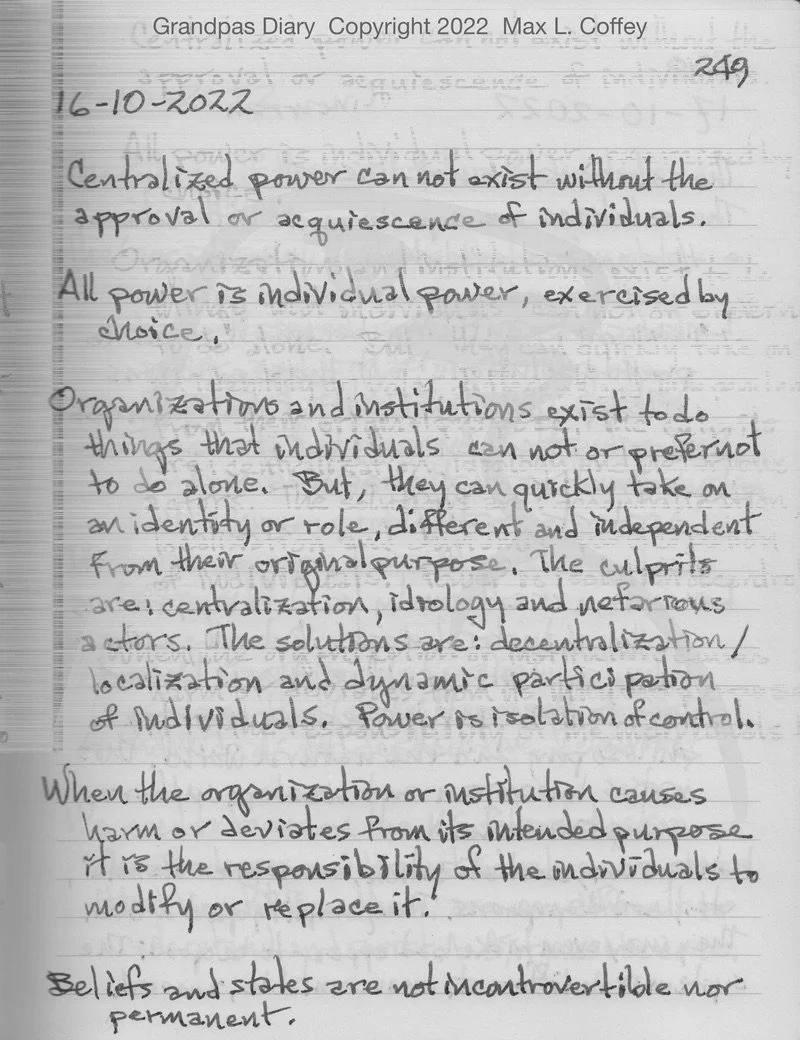 Grandpas Diary Copyright 2022 Max L. Coffey
249
16-10-2022
Centralized power can not exist without the
approval or acquiescence of individuals.
All power is individual power, exercised by
choice.
Organizations and institutions exist to do
things that individuals can not or prefer not
to do alone. But, they can quickly take on
an identity or role, different and independent
from their original purpose. The culprits
are: centralization, idiology and nefarious
actors. The solutions are: decentralization/
localization and dynamic participation
of individuals. Power is isolation of control.
When the organization or institution causes
harm or deviates from its intended purpose
it is the responsibility of the individuals to
modify or replace it.
Beliefs and states are not incontrovertible nor
permanent.